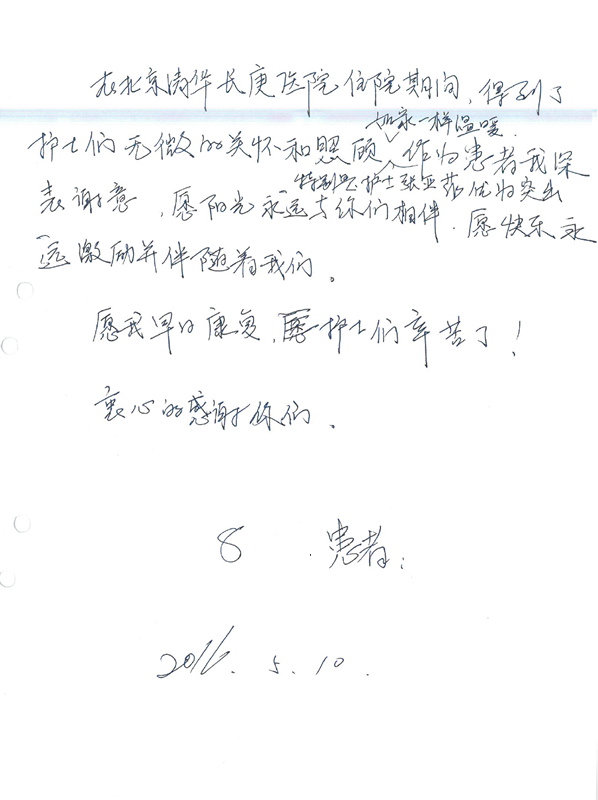 在北京清华长庚医院住院期间,得到了
如家一样温暖.
护士们无微的关怀和照顾 作为患者我深
特别是护士张亚莎优为突出
表谢意,愿阳光永远与你们相伴.愿快乐永
远激励并伴随着我们。
愿我早日康复,护士们辛苦了!
衷心的感谢你们.
8 患者:
2016.5.10.